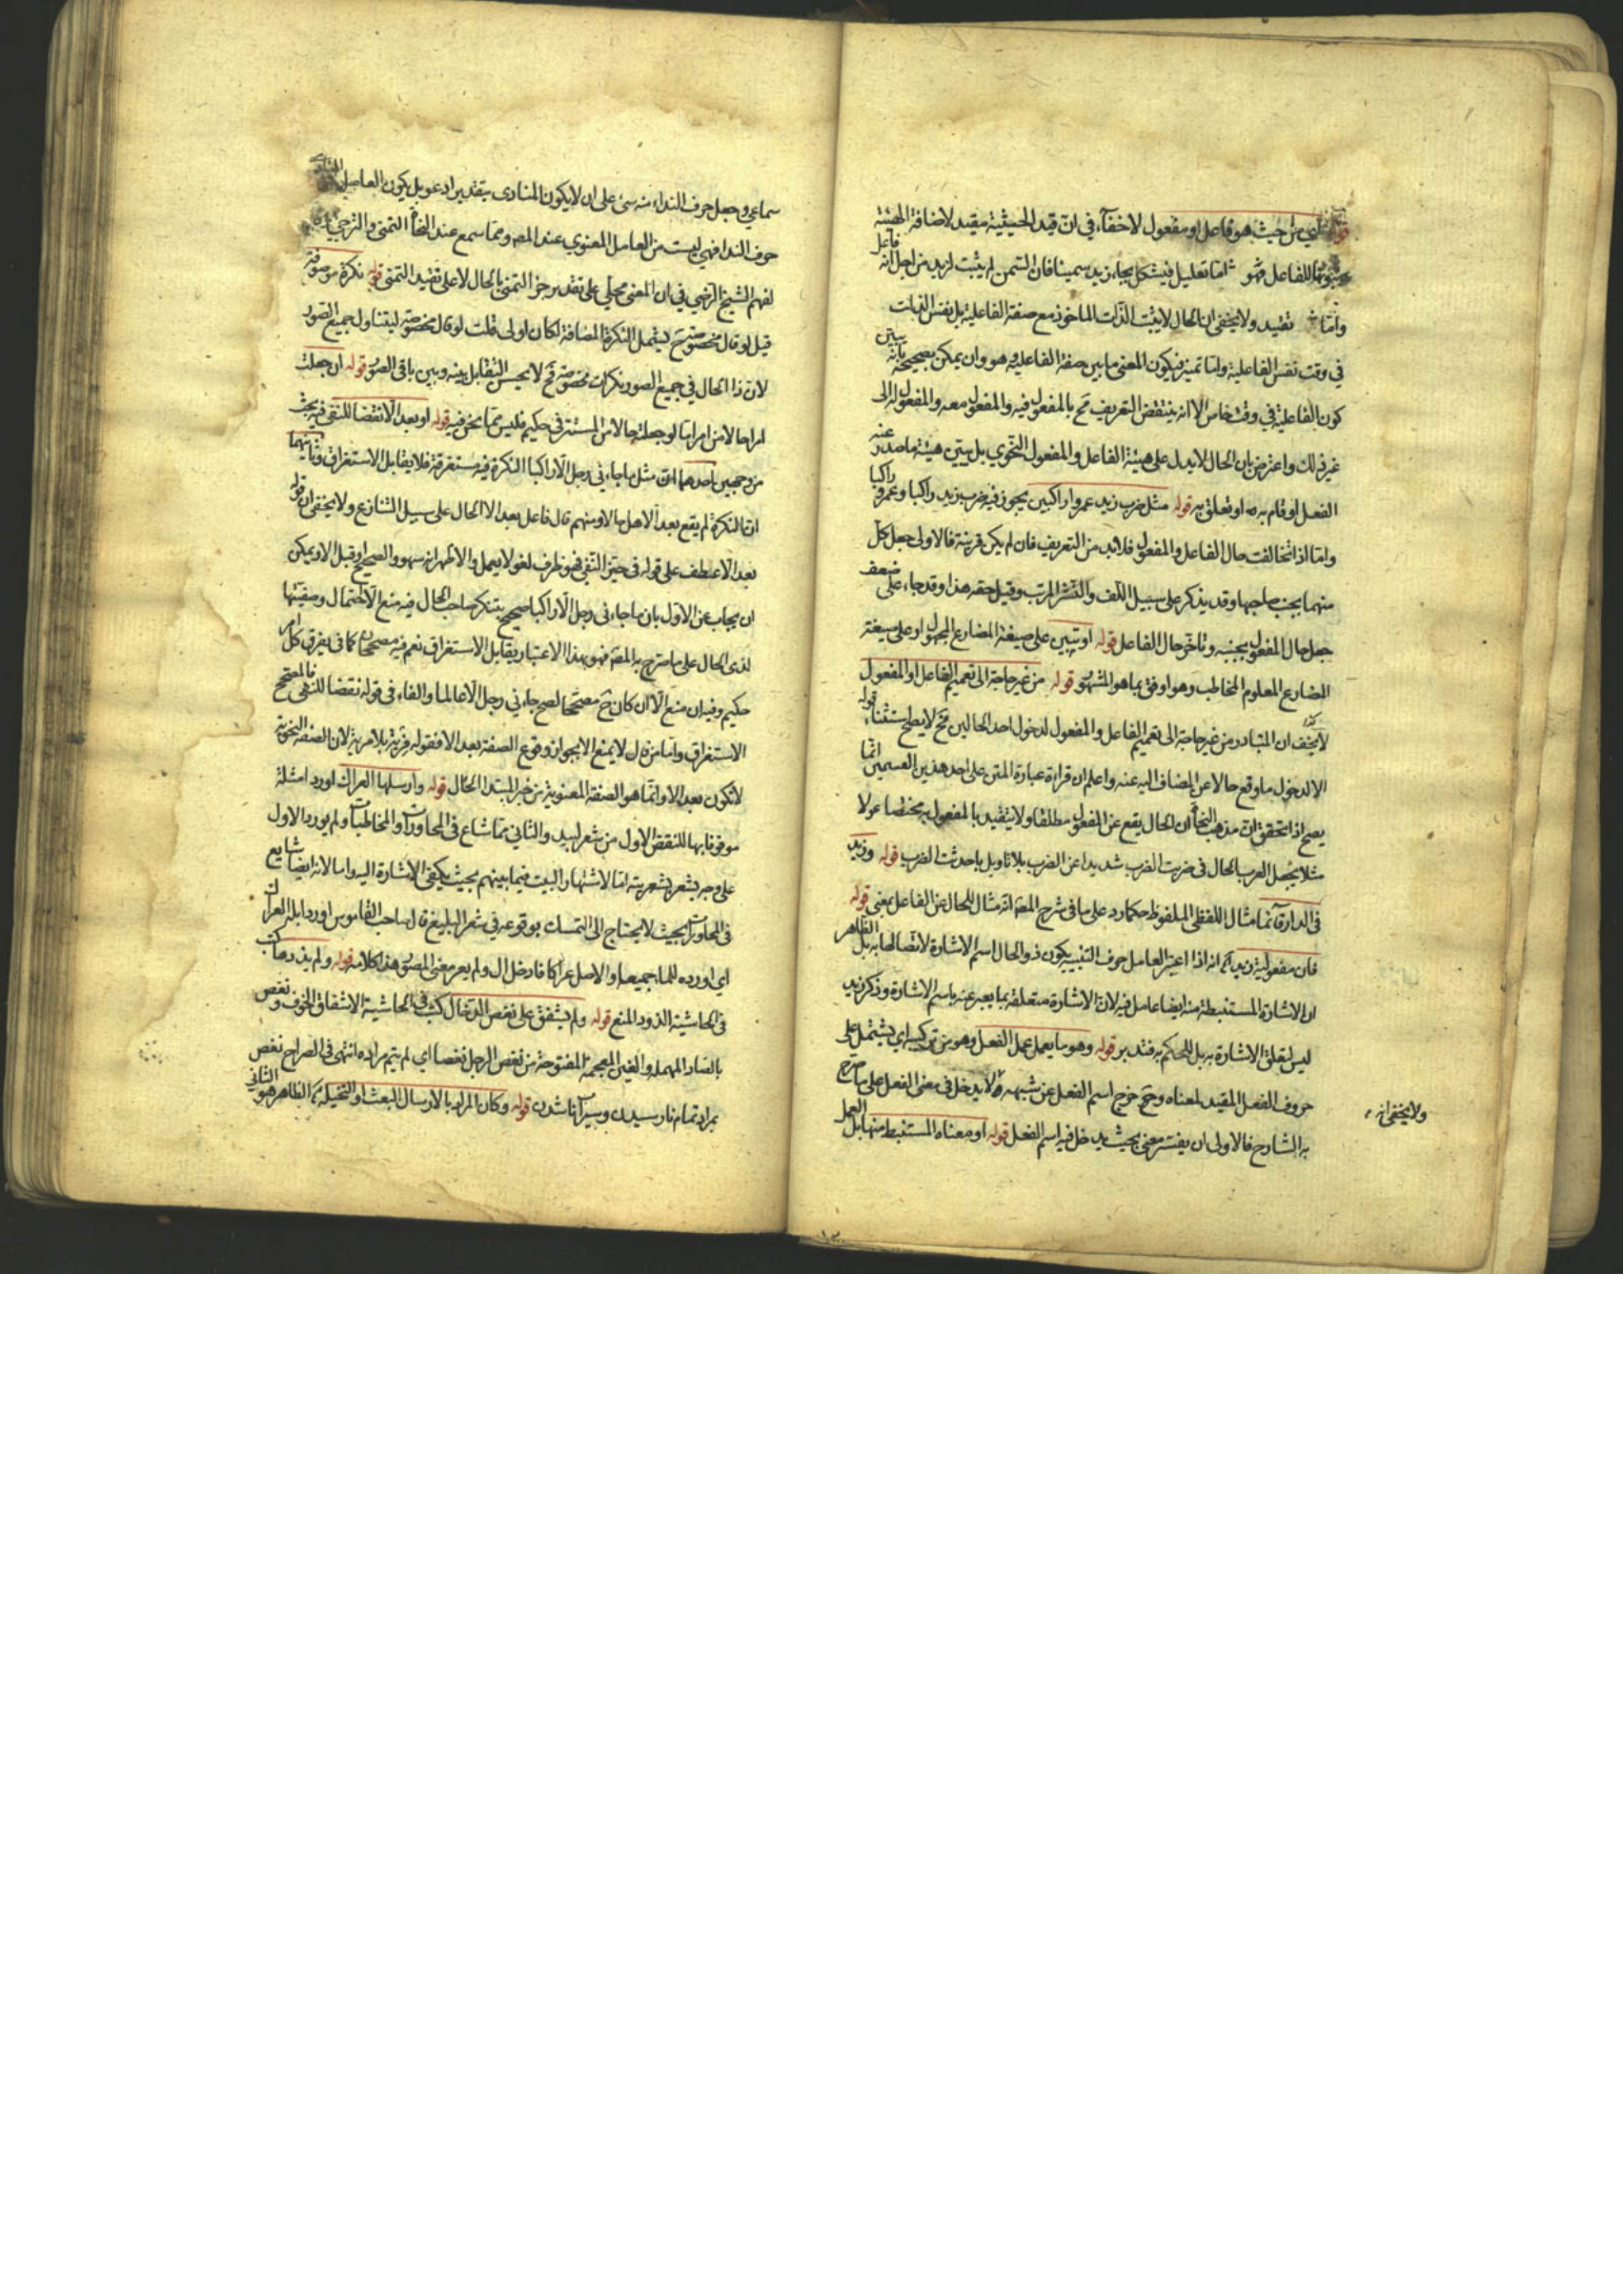 قوله اي من حيث هو فاعل او مفعول لا خفاء في ان قيد الحيثية مقيد لاضافة الهيئة
للفاعل فهو اما تعليل فيشكل بجاء زيد سمينا فان السمن لم يثبت لزيد من اجل انه فاعل
واما تقييد ولا يخفى ان الحال لا يثبت الذات الماخوذ مع صفة الفاعلية بل نفس الذات
في وقت نفس الفاعلية واما تميز فيكون المعنى ما يبين صفة الفاعلية وهو وان يمكن تصحيحه بانه يبين
كون الفاعلية في وقت خاص الا انه ينتقض التعريف ح بالمفعول فيه والمفعول معه والمفعول له الى
غير ذلك واعترض بان الحال لا يدل على هيئة الفاعل والمفعول النحوي بل يبين هيئة ما صدر عنه
الفعل او قام به او تعلق به قوله مثل ضرب زيد عمروا راكبين يجوز فيه ضرب زيد راكبا وعمروا راكبا
واما اذا تخالفت حال الفاعل والمفعول فلا بد من التعريف فان لم يكن قرينة فالاولى جعل كل
منهما بجنب صاحبها وقد يذكر على سبيل اللف والنشر المرتب وقيل حقه هذا وقد جاء على ضعف
جعل حال المفعول بجنبه وتاخر حال الفاعل قوله او تبين على صيغة المضارع المجهول او على صيغة
المضارع المعلوم المخاطب وهو اوفق بما هو المشهور قوله من غير حاجة الى تعميم الفاعل او المفعول
لا يخفى ان المتبادر من غير حاجة الى تعميم الفاعل والمفعول لدخول احد الحالين فح لا يصح استثناء قوله
الا لدخول ما وقع حالا عن المضاف اليه عنه واعلم ان قراءة عبارة المتن على احد هذين القسمين انما
يصح اذا تحقق ان مذهب النحاة ان الحال يقع عن المفعول مطلقا ولا يتقيد بالمفعول به
مثلا يجعل العرب الحال في ضربت الضرب شديدا عن الضرب بلا تاويل باحدثت الضرب قوله وزيد
في الدار قائما مثال اللفظي الملفوظ حكما رد على ما في شرح المص انه مثال للحال عن الفاعل معنى قوله
فان مفعولية زيد انه اذا اعتبر العامل حرف التنبيه يكون ذو الحال اسم الاشارة لاتصالها به بل الظاهر
ان الاشارة المستنبطة منه ايضا عامل فيه لان الاشارة متعلقة بما يعبر عنه باسم الاشارة وذكر زيد
ليس لتعلق الاشارة به بل للحكم به فتدبر قوله وهو ما يعمل عمل الفعل وهو من تركيبه اي يشتمل على
حروف الفعل المقيد لمعناه وح خرج اسم الفعل عن شبهه ولا يدخل في معنى الفعل على ما صرح
به الشارح فالاولى ان يفسر معنى بحيث يدخل فيه اسم الفعل قوله او معناه المستنبط منها بل العمل
ولا يخفى انه
سماعي وجعل حرف النداء منه مبني على ان لا يكون المنادى بتقدير ادعو بل يكون العامل
حرف النداء فهي ليست من العامل المعنوي عند المص ومما سمع عند النحاة التمني والترجي
لفهم الشيخ الرضي في ان المعنى على تقدير جز التمني بالحال لا على تقييد التمني قوله نكرة موصوفة
قيل لو قال مخصوصة ليشمل النكرة المضافة لكان اولى قلت لو قال مخصوصة ليتناول جميع الصور
لان ذا الحال في جميع الصور نكرات مخصوصة فح لا يحسن التقابل بينه وبين باقي الصور قوله ان جعلت
امرا حالا من امر اما لو جعلته حالا من المستتر في حكيم فليس مما نحن فيه قوله او بعد الا نقضا للنفي فيه بحث
من وجهين احدهما ان مثل ما جاءني رجل الا راكبا النكرة فيه مستغرقة فلا يقابل الاستغراق وثانيهما
ان النكرة لم يقع بعد الا هل حالا ومنهم قال فاعل بعد الا الحال على سبيل التنازع ولا يخفى ان قوله
بعد الا عطف على قوله في حيز النفي فهو ظرف لغو لا يعمل والاظهر انه سهو والصحيح او قبل الا ويمكن
ان يجاب عن الاول بان ما جاءني رجل الا راكبا صحيح بتنكر صاحب الحال فيه منع الاحتمال وصفيتها
لذى الحال على ما صرح به المص فهو بهذا الاعتبار يقابل الاستغراق نعم فيه مصححان كما في يفرق كل امر
حكيم وفيه ان منع الا ان كان ح مصححا لصح جاءني رجل الا عالما والفاء في قوله نقضا للنفي فالمصحح
الاستغراق واما من لا يمنع الا بجواز وقوع الصفة بعد الا فقوله فرية بلا مرية لان الصفة النحوية
لا تكون بعد الا وانما هو الصفة المعنوية من خبر المبتدا الحال قوله وارسلها العراك اورد امثلة
موقوفا بها للنقض الاول من شعر لبيد والثاني مما شاع في المحاورات والمخاطبات ولم يورد الاول
على وجه يشعر بشعريته اما لاشتهار البيت فيما بينهم بحيث يكفي الاشارة اليه واما لانه ايضا شايع
في المحاورات بحيث لا يحتاج الى التمسك بوقوعه في شعر البليغ قال صاحب القاموس اورد ابله العراك
اي اورده للماء جميعا والاصل عراكا فادخل ال ولم يعر معنى المصدر هذا كلامه قوله ولم يذدها
في الحاشية الذود المنع قوله ولم يشفق على نغص الدخال كتب في الحاشية الاشفاق الخوف ونغص
بالصاد المهملة والغين المعجمة المفتوحة من نغص الرجل نغصا اي لم يتم مراده انتهى في الصراح نغص
بمراد تمام نارسيدن وسيراب ناشدن قوله وكان المراد بالارسال البعث او التخلية الظاهر هو الثاني